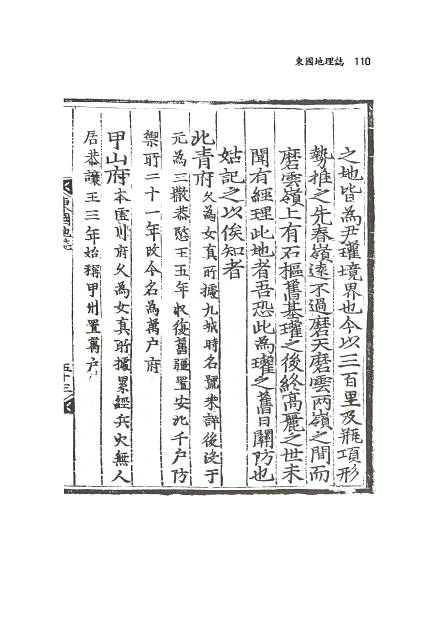 東國地理誌 110
之地皆為尹瓘境界也今以三百里及甁項形
勢推之先春嶺遠不過磨天磨雲兩嶺之間而
磨雲嶺上有石樞舊基瓘之後終高麗之世未
聞有經理此地者吾恐此為瓘之舊日關防也
姑記之以俟知者
北青府久為女真所據九城時名號未詳後沒于
元為三撒恭愍王五年收復舊疆置安北千戶防
禦所二十一年改今名為萬戶府
甲山府本虛川府久為女真所據累經兵火無人
居恭讓王三年始稱甲州置萬戶
東國地誌
五十三